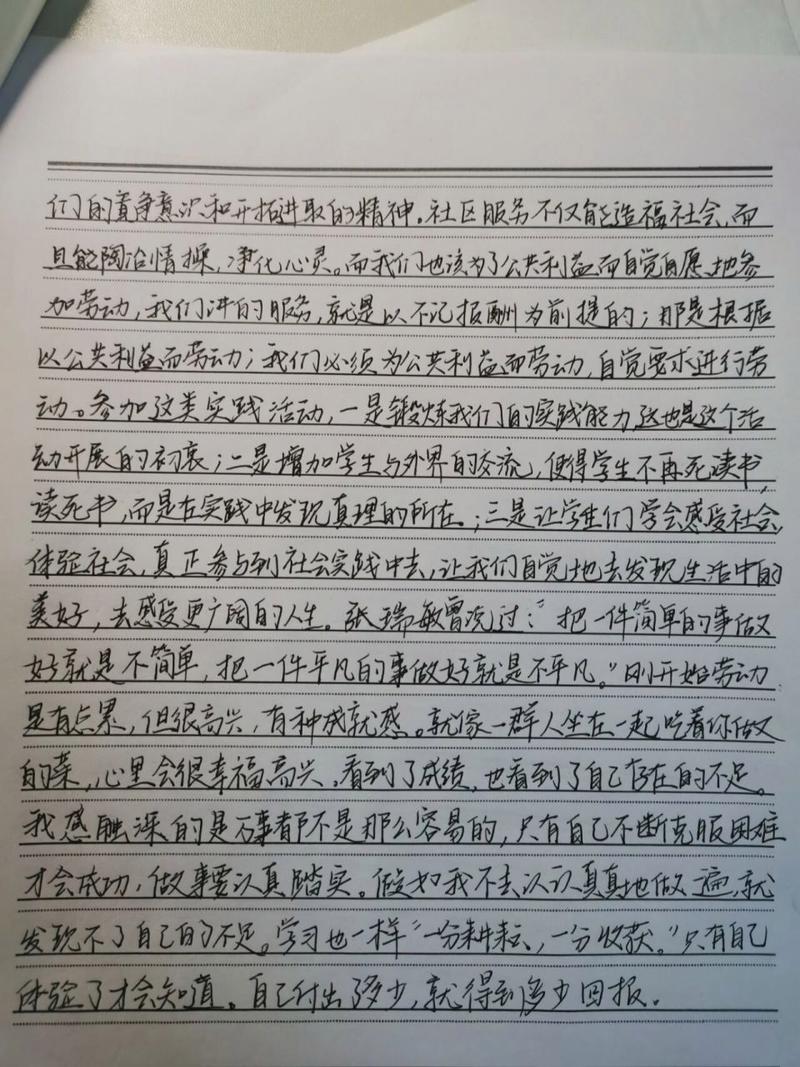 们的竞争意识和开拓进取的精神。社区服务不仅能造福社会，而
且能陶冶情操，净化心灵。而我们也该为了公共利益而自觉自愿地参
加劳动，我们讲的服务，就是以不记报酬为前提的；那是根据
以公共利益而劳动；我们必须为公共利益而劳动，自觉要求进行劳
动。参加这类实践活动，一是锻炼我们的实践能力，这也是这个活
动开展的初衷；二是增加学生与外界的交流，使得学生不再死读书，
读死书，而是在实践中发现真理的所在。；三是让学生们学会感受社会，
体验社会，真正参与到社会实践中去，让我们自觉地去发现生活中的
美好，去感受更广阔的人生。张瑞敏曾说过：“把一件简单的事做
好就是不简单，把一件平凡的事做好就是不平凡。”刚开始劳动
是有点累，但很高兴，有种成就感。就像一群人坐在一起吃着你做
的菜，心里会很幸福高兴。看到了成绩，也看到了自己存在的不足。
我感触深的是万事都不是那么容易的，只有自己不断克服困难
才会成功，做事要认真踏实。假如我不去认认真真地做一遍，就
发现不了自己的不足。学习也一样“一分耕耘，一分收获。”只有自己
体验了才会知道。自己付出了多少，就得到多少回报。